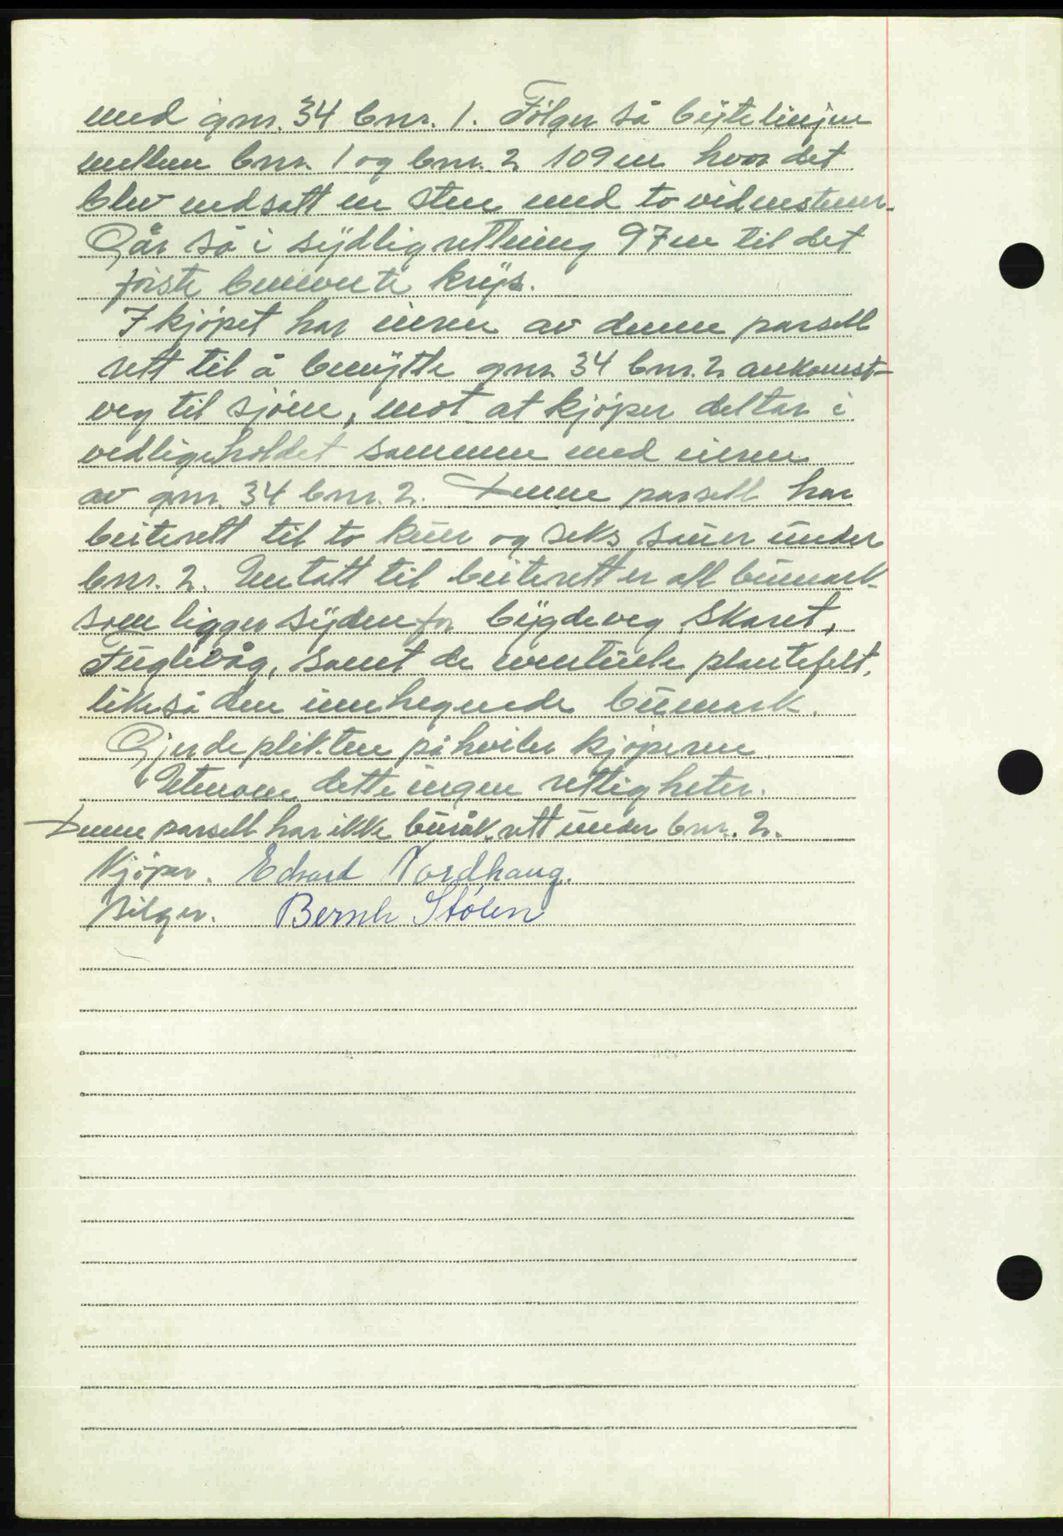 med gnr. 34 bnr. 1. Følger så bytelinjen
mellem bnr. 1 og bnr. 2 109 m hvor det
blev nedsatt en sten med to vidnestener.
Går så i sydlig rettning 97 m til det
første benevnte krys.
I kjøpet har eieren av denne parsell
rett til å benytte gnr. 34 bnr. 2 ankomst-
veg til sjøen, mot at kjøper deltar i
vedligeholdet sammen med eieren
av gnr. 34 bnr. 2. Denne parsell har
beiterett til to kuer og seks sauer under
bnr. 2. Untatt til beiterett er all bumark
som ligger syden for bygdeveg Skaret,
Fuglevåg, samt de eventuele plantefelt,
likeså den innhegnede bumark.
Gjerdeplikten påhviler kjøperen.
Utenom dette ingen rettigheter.
Denne parsell har ikke rett under bnr. 2.
Kjøper. Edvard Nordhaug.
Selger. Bernh Stølen